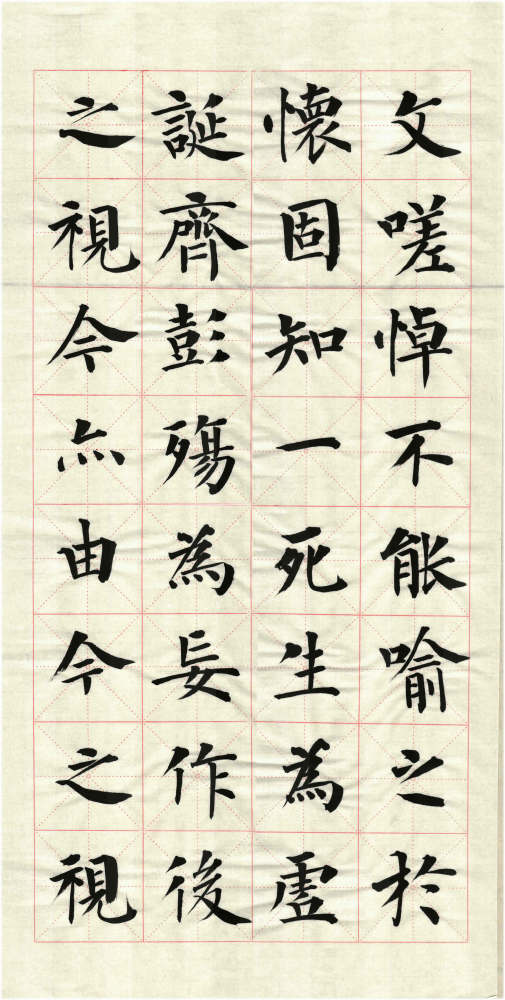 文嗟悼不能喻之於
懷固知一死生為虛
誕齊彭殤為妄作後
之視今亦由今之視